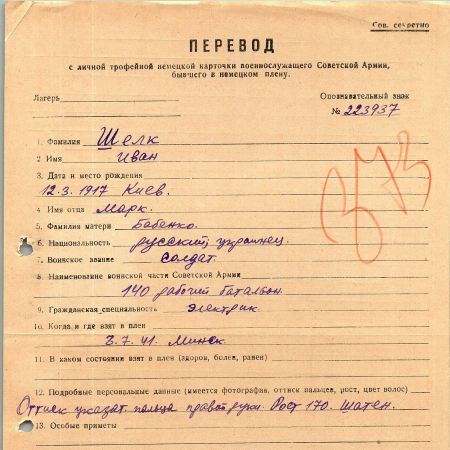 Сов. секретно
ПЕРЕВОД
с личной трофейной немецкой карточки военнослужащего Советской Армии,
бывшего в немецком плену.
Лагерь
Опознавательный знак
№ 223937
1. Фамилия Шелк
2 Имя Иван
3. Дата и место рождения
12.3.1917 Киев.
4. Имя отца Марк.
5. Фамилия матери Бабенко.
6. Национальность русский, украинец.
7. Воинское звание солдат.
8. Наименование воинской части Советской Армии
140 рабочий баталион.
9. Гражданская специальность электрик.
10. Когда и где взят в плен
8.7.41. Минск.
11. В каком состоянии взят в плен (здоров, болен, ранен)
12. Подробные персональные данные (имеется фотография, оттиск пальцев, рост, цвет волос)
Оттиск указат. пальца правой руки. Рост 170. Шатен.
13. Особые приметы